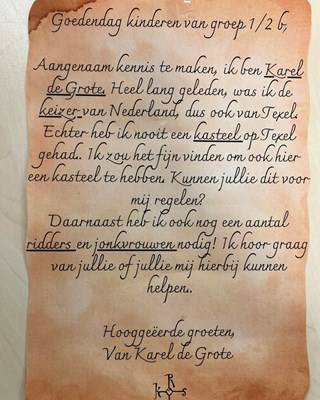 Goedendag kinderen van groep 1/2 b,
Aangenaam kennis te maken, ik ben Karel
de Grote. Heel lang geleden, was ik de
keizer van Nederland, dus ook van Texel.
Echter heb ik nooit een kasteel op Texel
gehad.. Ik zou het fijn vinden om ook hier
een kasteel te hebben. Kunnen jullie dit voor
mij regelen?
Daarnaast heb ik ook nog een aantal
ridders en jonkvrouwen nodig! Ik hoor graag
van jullie of jullie mij hierbij kunnen
helpen..
Hooggeëerde groeten,
Van Karel de Grote
R
K S